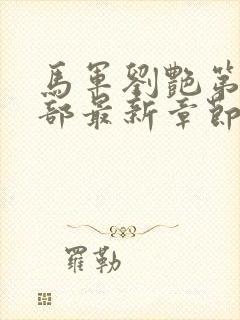 馬軍劉艷第
部最新章節
羅勒